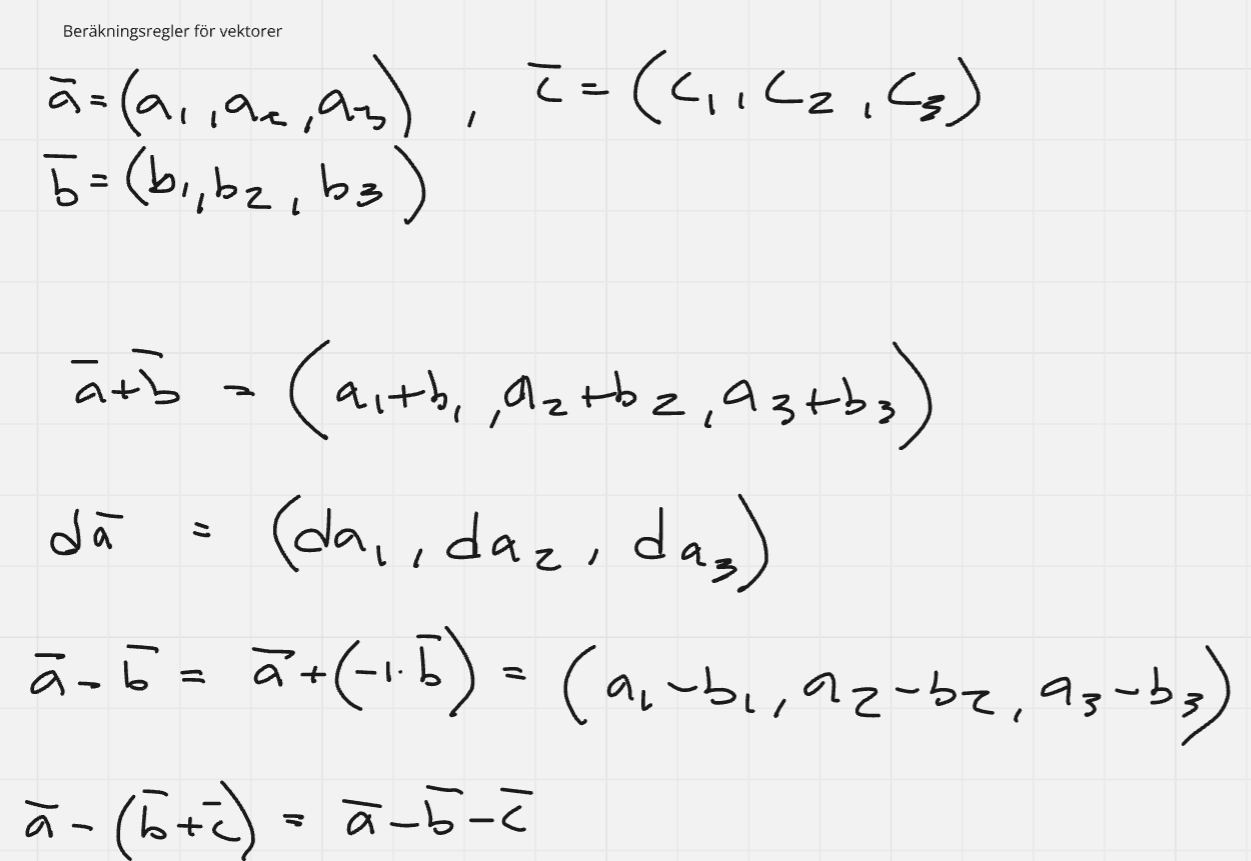 Beräkningsregler för vektorer
a̅ = (a₁, a₂, a₃) , c̅ = (c₁, c₂, c₃)
b̅ = (b₁, b₂, b₃)
a̅+b̅ = (a₁+b₁, a₂+b₂, a₃+b₃)
da̅ = (da₁, da₂, da₃)
a̅ - b̅ = a̅ + (-1·b̅) = (a₁-b₁, a₂-b₂, a₃-b₃)
a̅ - (b̅+c̅) = a̅ - b̅ - c̅